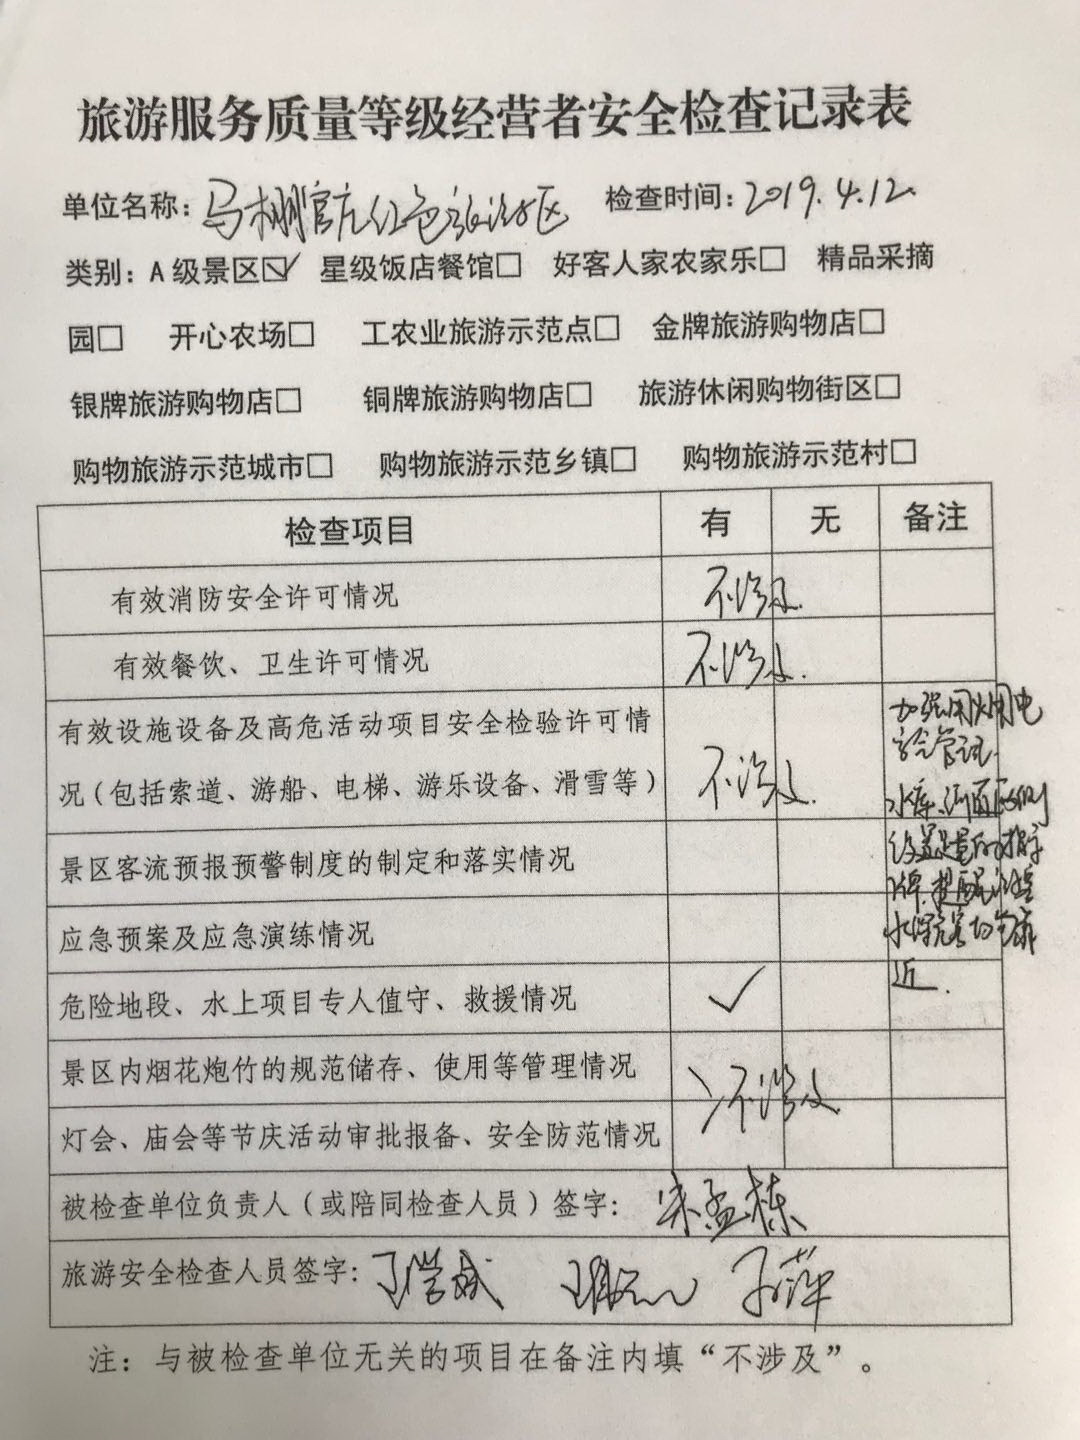 旅游服务质量等级经营者安全检查记录表
单位名称：马棚官庄红色旅游区 检查时间：2019.4.12
类别：A级景区☑ 星级饭店餐馆□ 好客人家农家乐□ 精品采摘
园□ 开心农场□ 工农业旅游示范点□ 金牌旅游购物店□
银牌旅游购物店□ 铜牌旅游购物店□ 旅游休闲购物街区□
购物旅游示范城市□ 购物旅游示范乡镇□ 购物旅游示范村□
检查项目 有 无 备注
有效消防安全许可情况 不涉及.
有效餐饮、卫生许可情况 不涉及.
有效设施设备及高危活动项目安全检验许可情
况（包括索道、游船、电梯、游乐设备、滑雪等） 不涉及.
加强用火用电
安全管理.
水库、河道两侧
设置足量的指示
牌,提醒注意
水深危险勿靠
近.
景区客流预报预警制度的制定和落实情况
应急预案及应急演练情况
危险地段、水上项目专人值守、救援情况 ✓
景区内烟花炮竹的规范储存、使用等管理情况
不涉及
灯会、庙会等节庆活动审批报备、安全防范情况
被检查单位负责人（或陪同检查人员）签字： 朱孟栋
旅游安全检查人员签字：
注：与被检查单位无关的项目在备注内填“不涉及”。